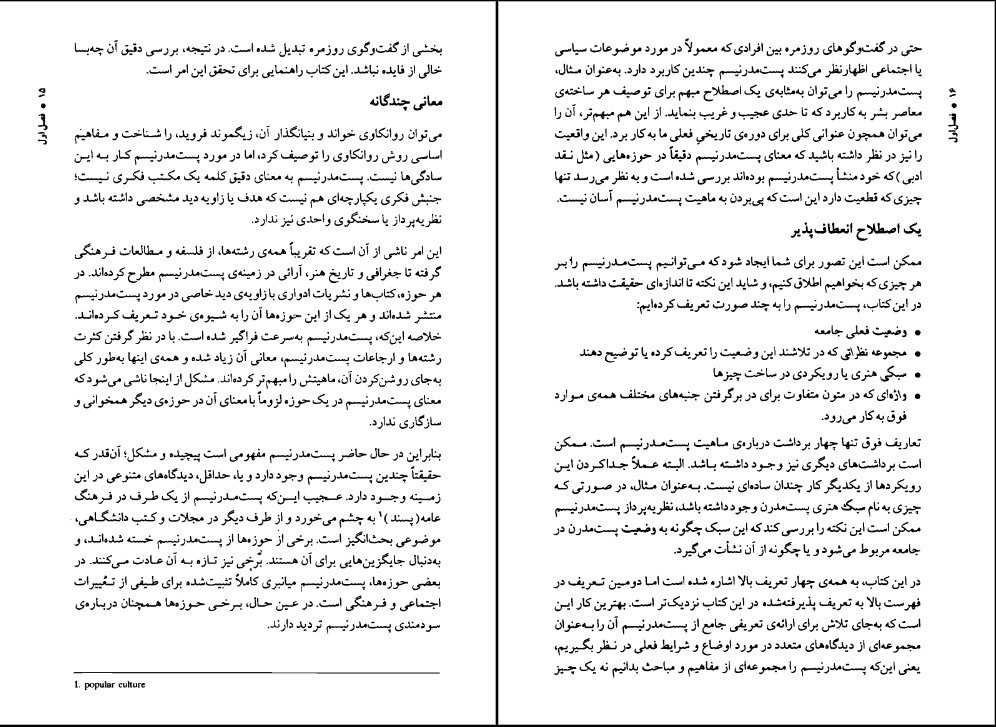 بخشی از گفت‌وگوی روزمره تبدیل شده است. در نتیجه، بررسی دقیق آن چه‌بسا
خالی از فایده نباشد. این کتاب راهنمایی برای تحقق این امر است.
۱۵ • فصل اول
معانی چندگانه
می‌توان روانکاوی خواند و بنیانگذار آن، زیگموند فروید، را شناخت و مفاهیم
اساسی روش روانکاوی را توصیف کرد، اما در مورد پست‌مدرنیسم کار به این
سادگی‌ها نیست. پست‌مدرنیسم به معنای دقیق کلمه یک مکتب فکری نیست؛
جنبش فکری یکپارچه‌ای هم نیست که هدف یا زاویه دید مشخصی داشته باشد و
نظریه‌پرداز یا سخنگوی واحدی نیز ندارد.
این امر ناشی از آن است که تقریباً همه‌ی رشته‌ها، از فلسفه و مطالعات فرهنگی
گرفته تا جغرافی و تاریخ هنر، آرائی در زمینه‌ی پست‌مدرنیسم مطرح کرده‌اند. در
هر حوزه، کتاب‌ها و نشریات ادواری با زاویه‌ی دید خاصی در مورد پست‌مدرنیسم
منتشر شده‌اند و هر یک از این حوزه‌ها آن را به شیوه‌ی خود تعریف کرده‌اند.
خلاصه این‌که، پست‌مدرنیسم به‌سرعت فراگیر شده است. با در نظر گرفتن کثرت
رشته‌ها و ارجاعات پست‌مدرنیسم، معانی آن زیاد شده و همه‌ی اینها به‌طور کلی
به‌جای روشن‌کردن آن، ماهیتش را مبهم‌تر کرده‌اند. مشکل از اینجا ناشی می‌شود که
معنای پست‌مدرنیسم در یک حوزه لزوماً با معنای آن در حوزه‌ی دیگر همخوانی و
سازگاری ندارد.
بنابراین در حال حاضر پست‌مدرنیسم مفهومی است پیچیده و مشکل؛ آن‌قدر که
حقیقتاً چندین پست‌مدرنیسم وجود دارد و یا، حداقل، دیدگاه‌های متنوعی در این
زمینه وجود دارد. عجیب این‌که پست‌مدرنیسم از یک طرف در فرهنگ
عامه(پسند)۱ به چشم می‌خورد و از طرف دیگر در مجلات و کتب دانشگاهی،
موضوعی بحث‌انگیز است. برخی از حوزه‌ها از پست‌مدرنیسم خسته شده‌اند، و
به‌دنبال جایگزین‌هایی برای آن هستند. برخی نیز تازه به آن عادت می‌کنند. در
بعضی حوزه‌ها، پست‌مدرنیسم میانبری کاملاً تثبیت‌شده برای طیفی از تغییرات
اجتماعی و فرهنگی است. در عین حال، برخی حوزه‌ها همچنان درباره‌ی
سودمندی پست‌مدرنیسم تردید دارند.
1. popular culture
حتی در گفت‌وگوهای روزمره بین افرادی که معمولاً در مورد موضوعات سیاسی
یا اجتماعی اظهارنظر می‌کنند پست‌مدرنیسم چندین کاربرد دارد. به‌عنوان مثال،
پست‌مدرنیسم را می‌توان به‌مثابه‌ی یک اصطلاح مبهم برای توصیف هر ساخته‌ی
معاصر بشر به کار برد که تا حدی عجیب و غریب بنماید. از این هم مبهم‌تر، آن را
می‌توان همچون عنوانی کلی برای دوره‌ی تاریخیِ فعلی ما به کار برد. این واقعیت
را نیز در نظر داشته باشید که معنای پست‌مدرنیسم دقیقاً در حوزه‌هایی (مثل نقد
ادبی) که خود منشأ پست‌مدرنیسم بوده‌اند بررسی شده است و به نظر می‌رسد تنها
چیزی که قطعیت دارد این است که پی‌بردن به ماهیت پست‌مدرنیسم آسان نیست.
۱۶ • فصل اول
یک اصطلاح انعطاف‌پذیر
ممکن است این تصور برای شما ایجاد شود که می‌توانیم پست‌مدرنیسم را بر
هر چیزی که بخواهیم اطلاق کنیم، و شاید این نکته تا اندازه‌ای حقیقت داشته باشد.
در این کتاب، پست‌مدرنیسم را به چند صورت تعریف کرده‌ایم:
• وضعیت فعلی جامعه
• مجموعه نظراتی که در تلاشند این وضعیت را تعریف کرده یا توضیح دهند
• سبکی هنری یا رویکردی در ساخت چیزها
• واژه‌ای که در متون متفاوت برای در برگرفتن جنبه‌های مختلف همه‌ی موارد
فوق به کار می‌رود.
تعاریف فوق تنها چهار برداشت درباره‌ی ماهیت پست‌مدرنیسم است. ممکن
است برداشت‌های دیگری نیز وجود داشته باشد. البته عملاً جداکردن این
رویکردها از یکدیگر کار چندان ساده‌ای نیست. به‌عنوان مثال، در صورتی که
چیزی به نام سبک هنری پست‌مدرن وجود داشته باشد، نظریه‌پرداز پست‌مدرنیسم
ممکن است این نکته را بررسی کند که این سبک چگونه به وضعیت پست‌مدرن در
جامعه مربوط می‌شود و یا چگونه از آن نشأت می‌گیرد.
در این کتاب، به همه‌ی چهار تعریف بالا اشاره شده است اما دومین تعریف در
فهرست بالا به تعریف پذیرفته‌شده در این کتاب نزدیک‌تر است. بهترین کار این
است که به‌جای تلاش برای ارائه‌ی تعریفی جامع از پست‌مدرنیسم آن را به‌عنوان
مجموعه‌ای از دیدگاه‌های متعدد در مورد اوضاع و شرایط فعلی در نظر بگیریم،
یعنی این‌که پست‌مدرنیسم را مجموعه‌ای از مفاهیم و مباحث بدانیم نه یک چیز